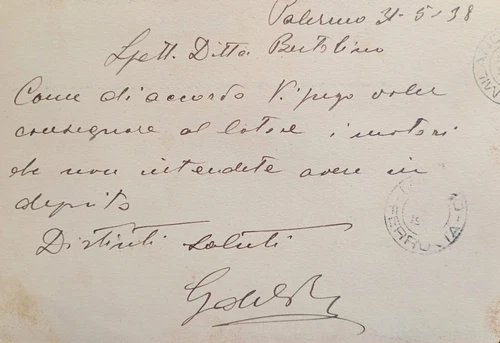 Palermo 31-5-38
Spett. Ditta Bertolino
Come di accordo Vi prego voler
consegnare al latore i motori
che non intendete avere in
deposito
Distinti saluti
MILA
FERROVIA